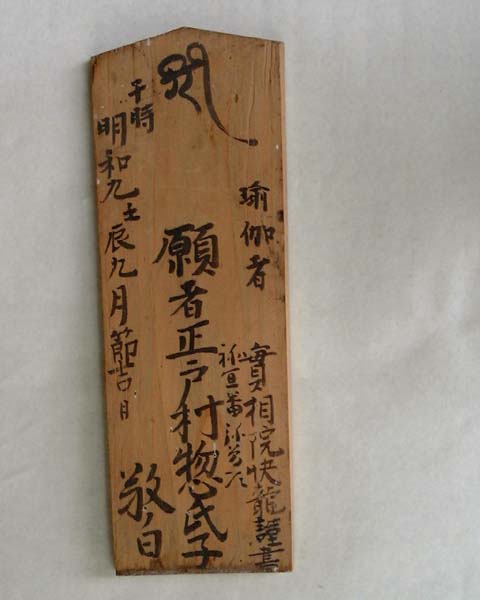 瑜伽者
實相院快龍謹書
願者正戸村惣氏子
敬白
于時
明和九壬辰九月節吉日